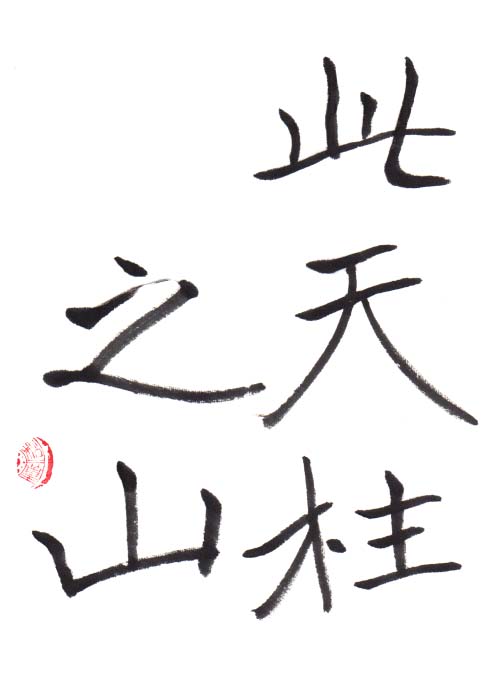 此天柱
之山